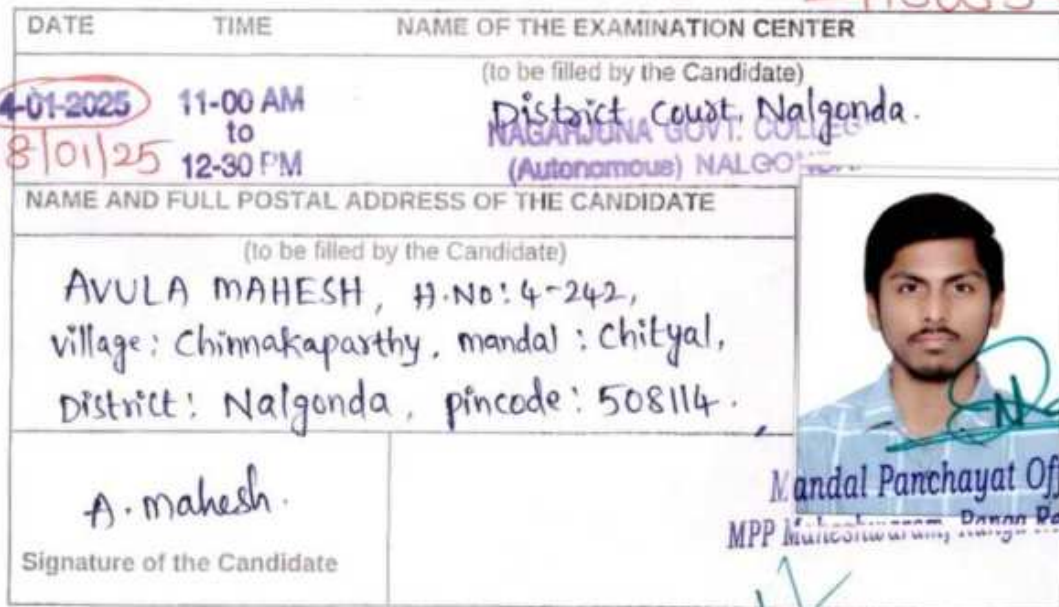 DATE TIME NAME OF THE EXAMINATION CENTER
(to be filled by the Candidate)
4-01-2025 11-00 AM District Court, Nalgonda.
to NAGARJUNA GOVT. COLLEG
8/01/25 12-30 PM (Autonomous)
NAME AND FULL POSTAL ADDRESS OF THE CANDIDATE
(to be filled by the Candidate)
AVULA MAHESH, H.NO: 4-242,
village: Chinnakaparthy, mandal: Chityal,
District: Nalgonda, pincode: 508114.
A. mahesh.
Signature of the Candidate
Mandal Panchayat Off
MPP Maheshwaram, Ranga Re